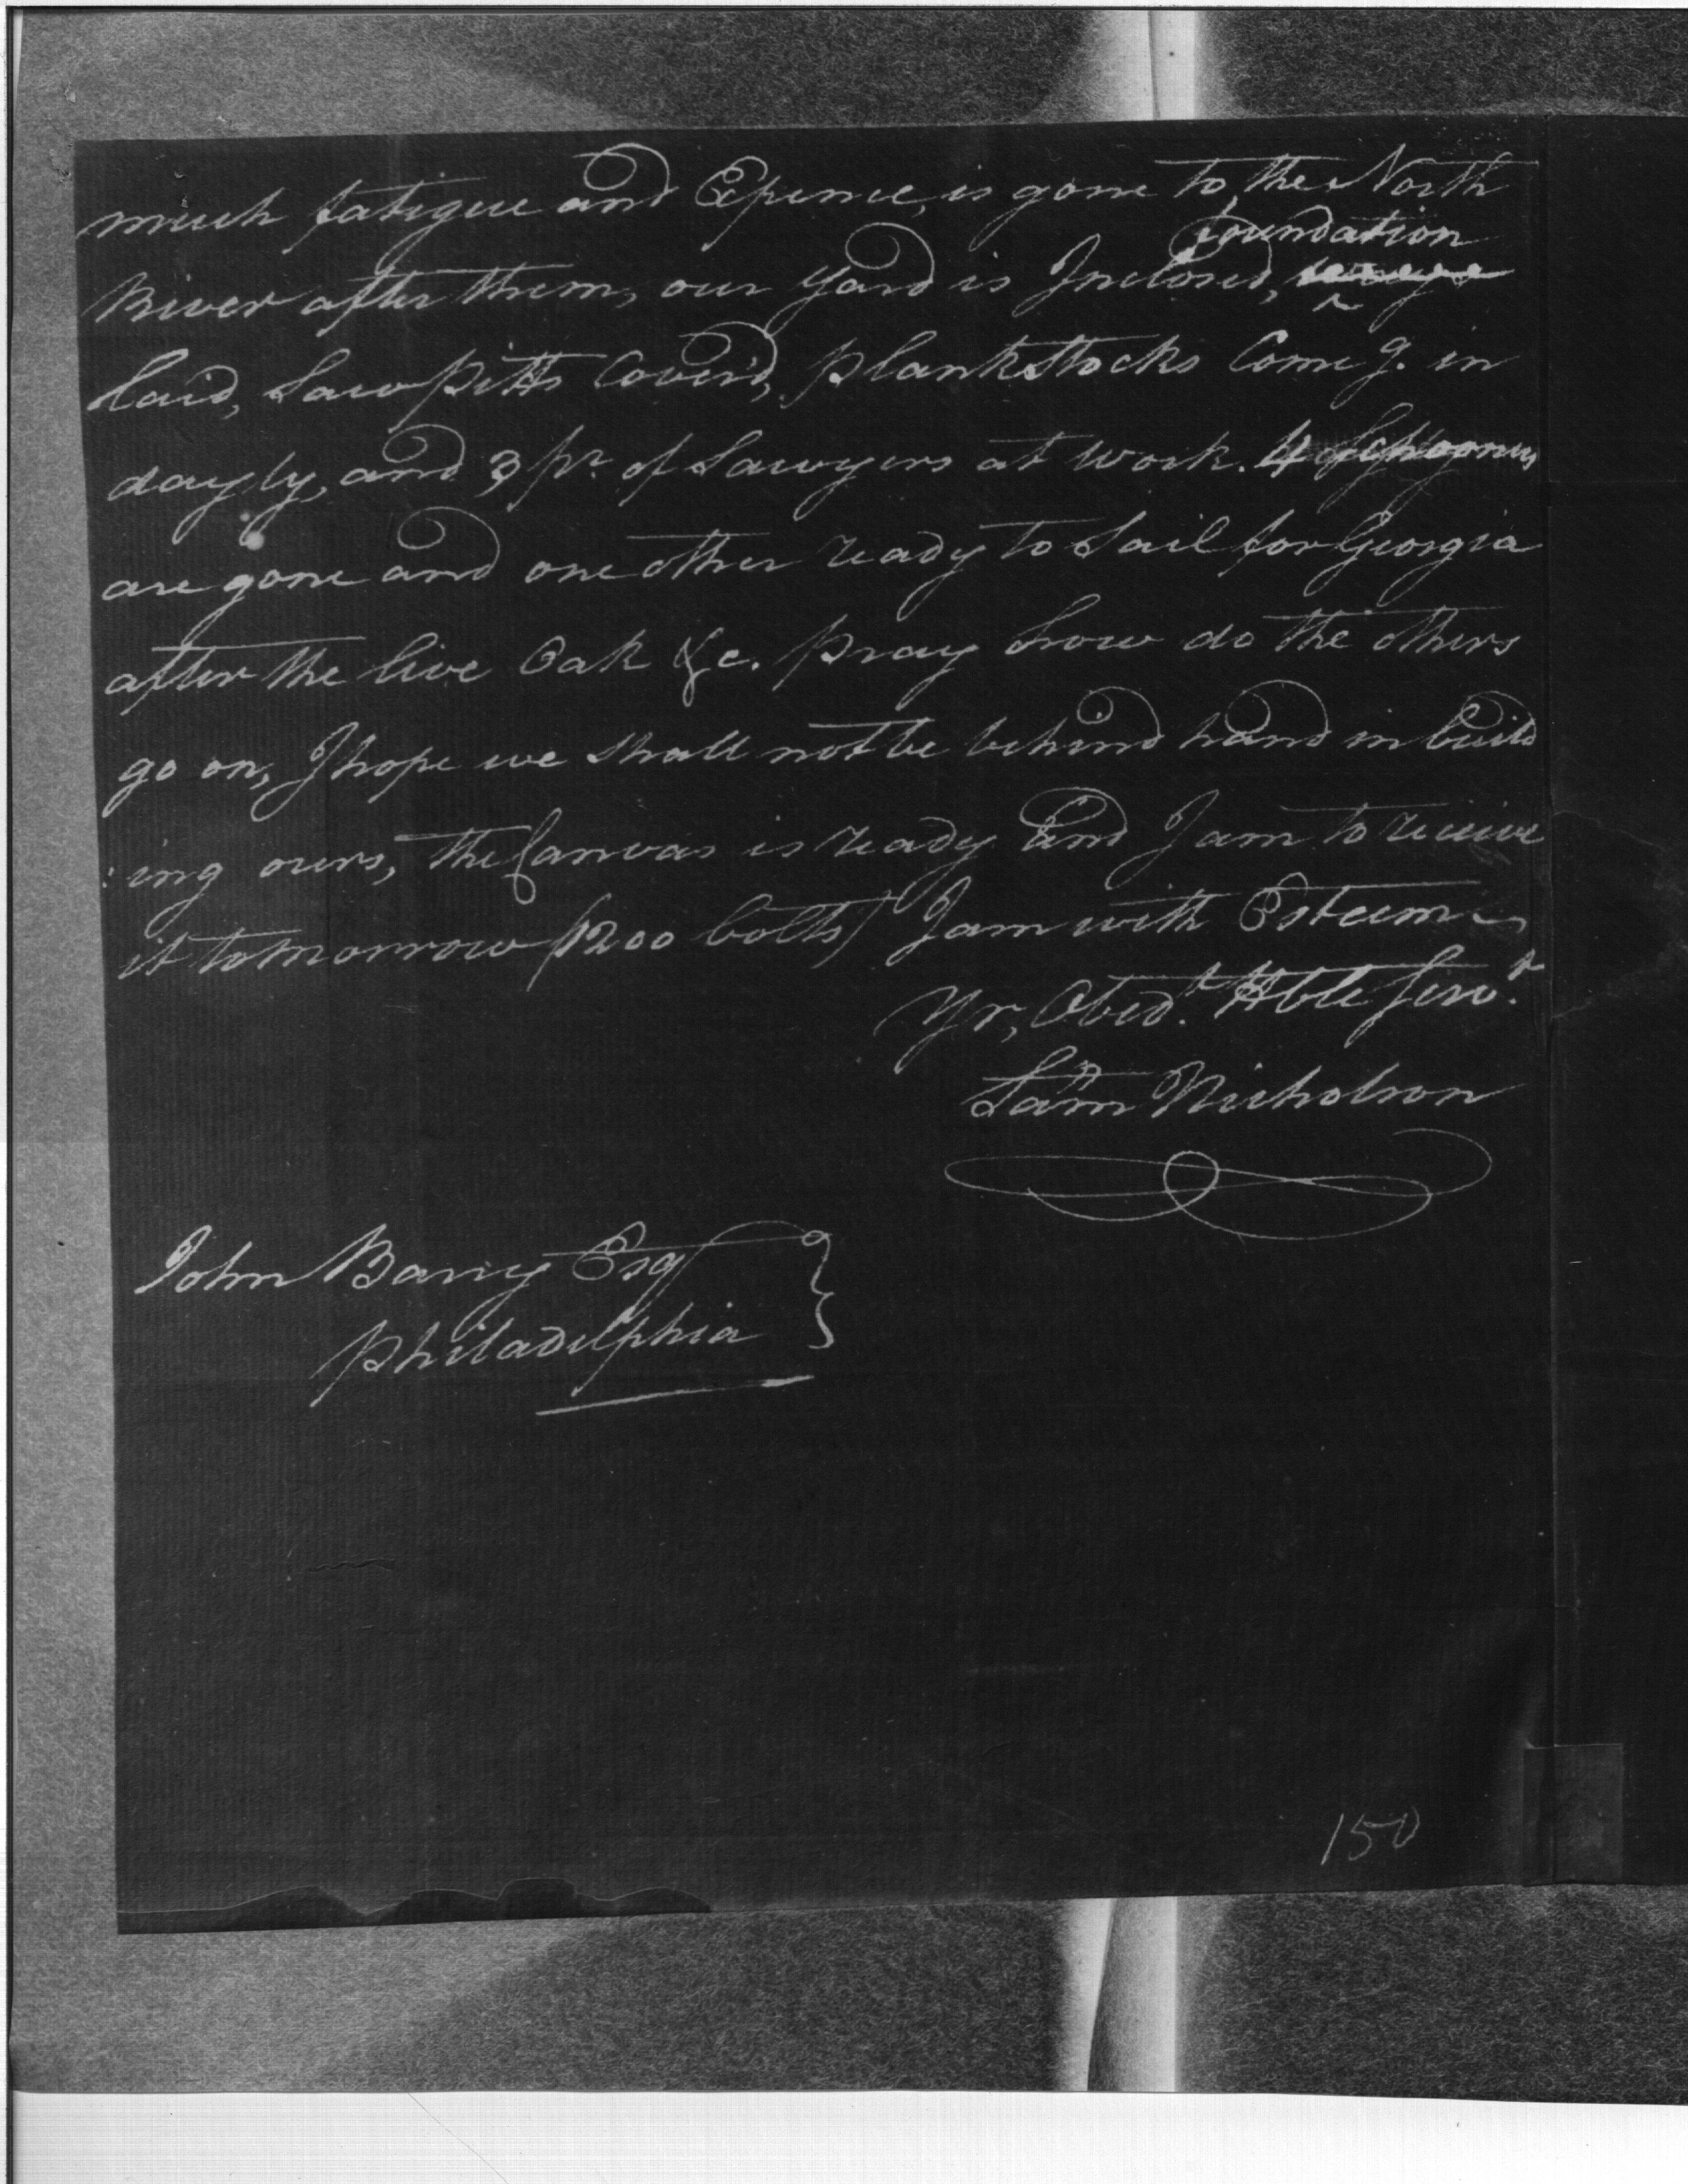 much fatigue and Expence, is gone to the North
River after them, our Yard is Inclosed, foundation
laid, Saw pitts Cover'd, plank Stocks Comeg. in
dayly, and 3 pr. of Sawyers at work. 4 Schooners
are gone and one other ready to Sail for Georgia
after the live Oak &c. pray how do the others
go on, I hope we shall not be behind hand in build
:ing ours, the Canvas is ready and I am to receive
it tomorrow (1200 bolts) I am with Esteem
Yr, Obedt. Hble Servt.
Saml Nicholson
John Barry Esq
Philadelphia
150